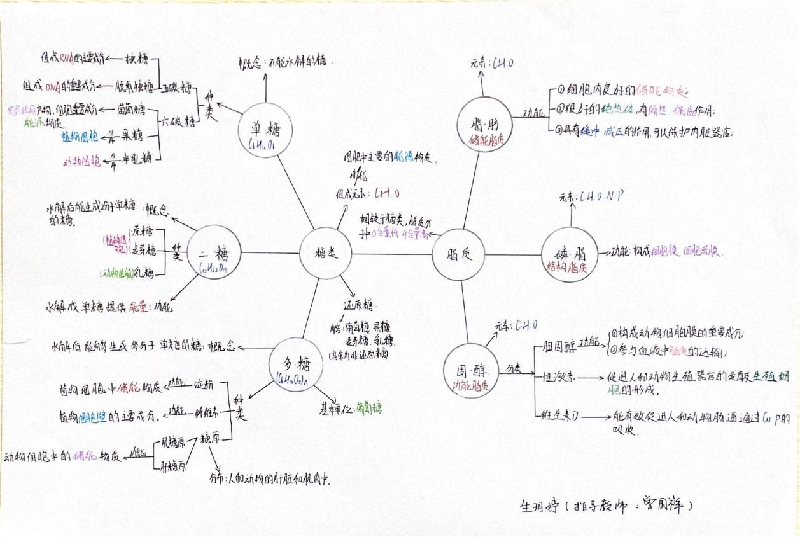 组成RNA的主要成分 核糖
组成DNA的主要成分 脱氧核糖 五碳糖
葡萄糖 六碳糖
植物细胞 果糖
动物细胞 半乳糖
种类
概念:不能水解的糖
单糖
C₆H₁₂O₆
水解后能生成两分子单糖
的糖 概念
蔗糖
麦芽糖
动物细胞 乳糖
种类
水解成单糖提供能量:功能
二糖
C₁₂H₂₂O₁₁
细胞中主要的能源物质
功能
组成元素:C H O
糖类
相较于糖类,脂质分
子中O含量低 H含量高
还原糖
葡萄糖 果糖
麦芽糖 乳糖
水解后能够生成许多分子单糖的糖:概念
多糖
植物细胞中储能物质 功能 淀粉
植物细胞壁的主要成分 功能 纤维素
种类
动物细胞中的储能物质 功能 肌糖原
肝糖原
糖原
分布:人和动物的肝脏和肌肉中
基本单位:葡萄糖
元素:C H O
脂肪
储能脂质
功能
①细胞内良好的储能物质;
②很好的绝热体,有隔热 保温作用;
③具有缓冲 减压的作用,可以保护内脏器官.
脂质
元素:C H O N P
磷脂
结构脂质
功能:构成细胞膜 细胞器膜.
元素:C H O
固醇
功能脂质
分类
胆固醇 功能
①构成动物细胞膜的重要成分
②参与血液中脂质的运输;
性激素 促进人和动物生殖器官的发育及生殖细
胞的形成.
维生素D 能有效促进人和动物肠道对Ca P的
吸收
(指导教师: